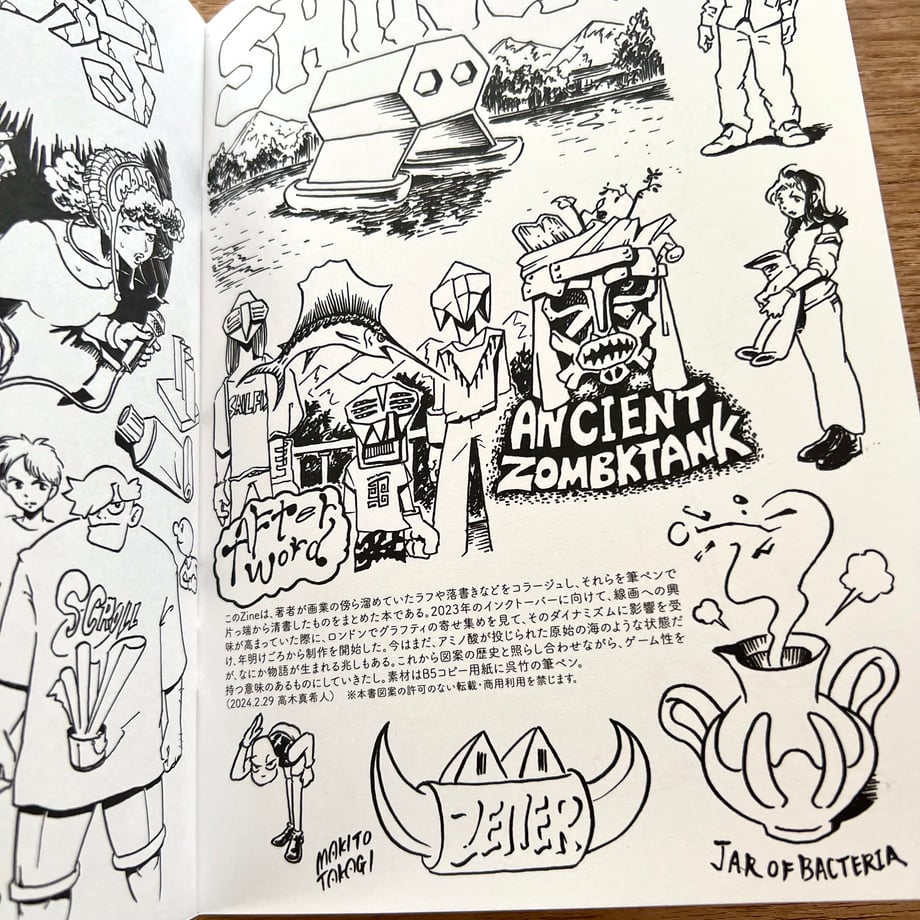 SAILFI
ANCIENT
ZOMBKTANK
After
word
SCROLL
このZineは、著者が画業の傍ら溜めていたラフや落書きなどをコラージュし、それらを筆ペンで
片っ端から清書したものをまとめた本である。2023年のインクトーバーに向けて、線画への興
味が高まっていた際に、ロンドンでグラフティの寄せ集めを見て、そのダイナミズムに影響を受
け、年明けごろから制作を開始した。今はまだ、アミノ酸が投じられた原始の海のような状態だ
が、なにか物語が生まれる兆しもある。これから図案の歴史と照らし合わせながら、ゲーム性を
持つ意味のあるものにしていきたし。素材はB5コピー用紙に呉竹の筆ペン。
（2024.2.29 高木真希人）　※本書図案の許可のない転載・商用利用を禁じます。
MAKITO
TAKAGI
ZETER
JAR OF BACTERIA